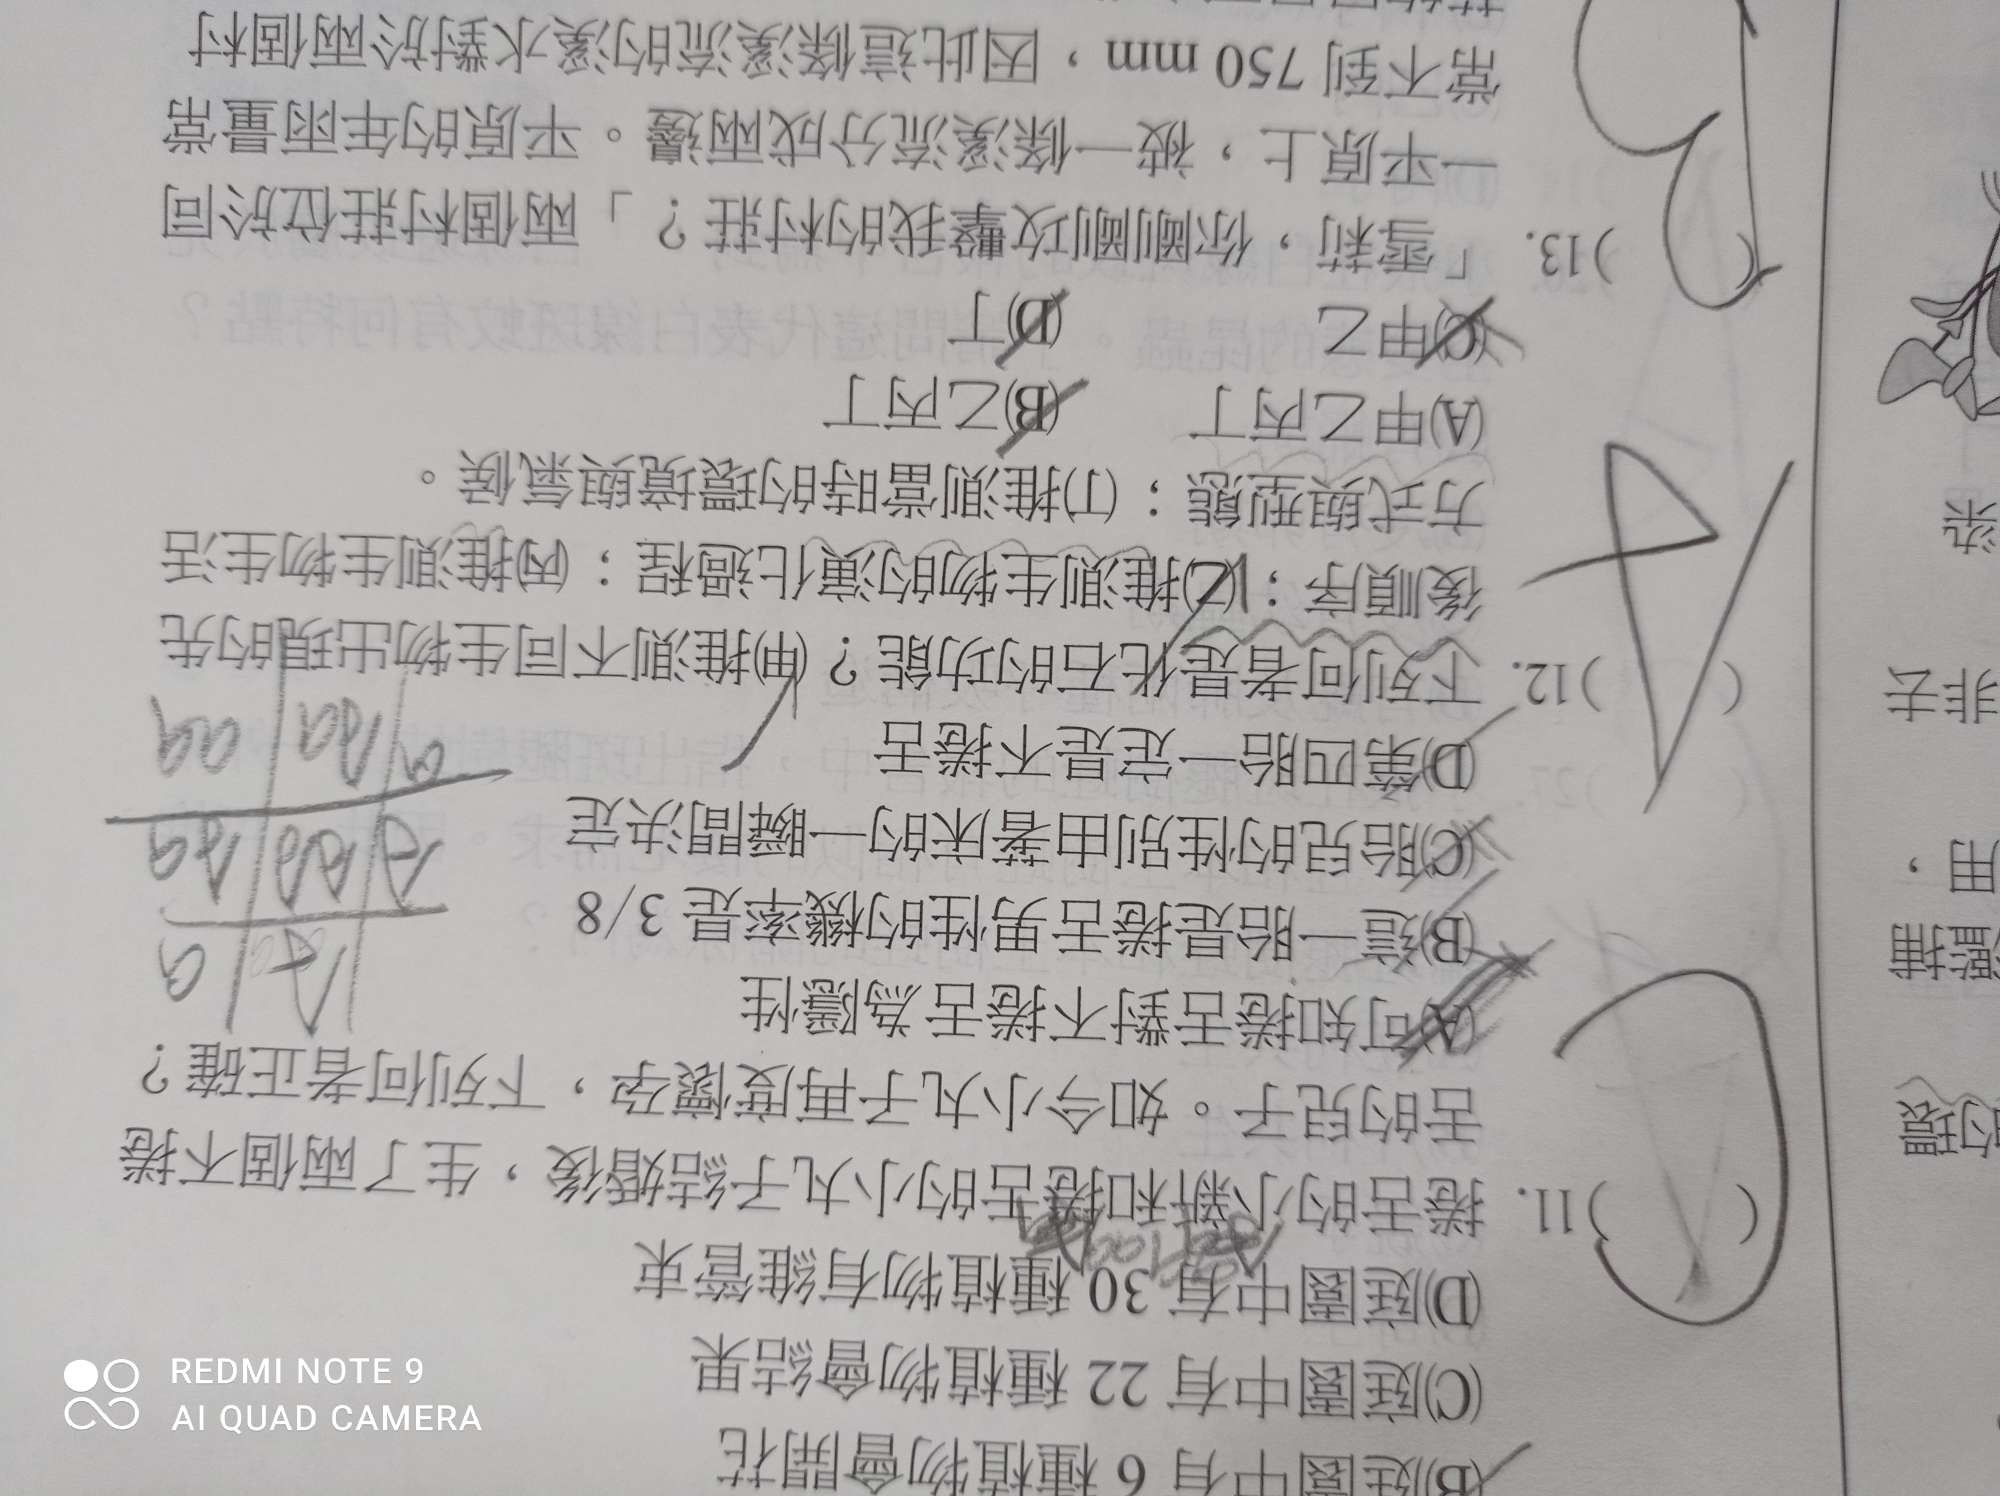 (B)庭園中有 6 種植物會開花
(C)庭園中有 22 種植物會結果
(D)庭園中有 30 種植物有維管束
( )11. 捲舌的小新和捲舌的小丸子結婚後，生了兩個不捲
舌的兒子。如今小丸子再度懷孕，下列何者正確？
(A)可知捲舌對不捲舌為隱性
(B)這一胎是捲舌男性的機率是 3/8
(C)胎兒的性別由著床的一瞬間決定
(D)第四胎一定是不捲舌
A a
A AA Aa
a Aa aa
( )12. 下列何者是化石的功能？(甲)推測不同生物出現的先
後順序；(乙)推測生物的演化過程；(丙)推測生物生活
方式與型態；(丁)推測當時的環境與氣候。
(A)甲乙丙丁 (B)乙丙丁
(C)甲乙 (D)丁
A
( )13. 「雪莉，你剛剛攻擊我的村莊？」兩個村莊位於同
一平原上，被一條溪流分成兩邊。平原的年雨量常
常不到 750 mm，因此這條溪流的溪水對於兩個村
的環
濫捕
用，
非去
染
REDMI NOTE 9
AI QUAD CAMERA